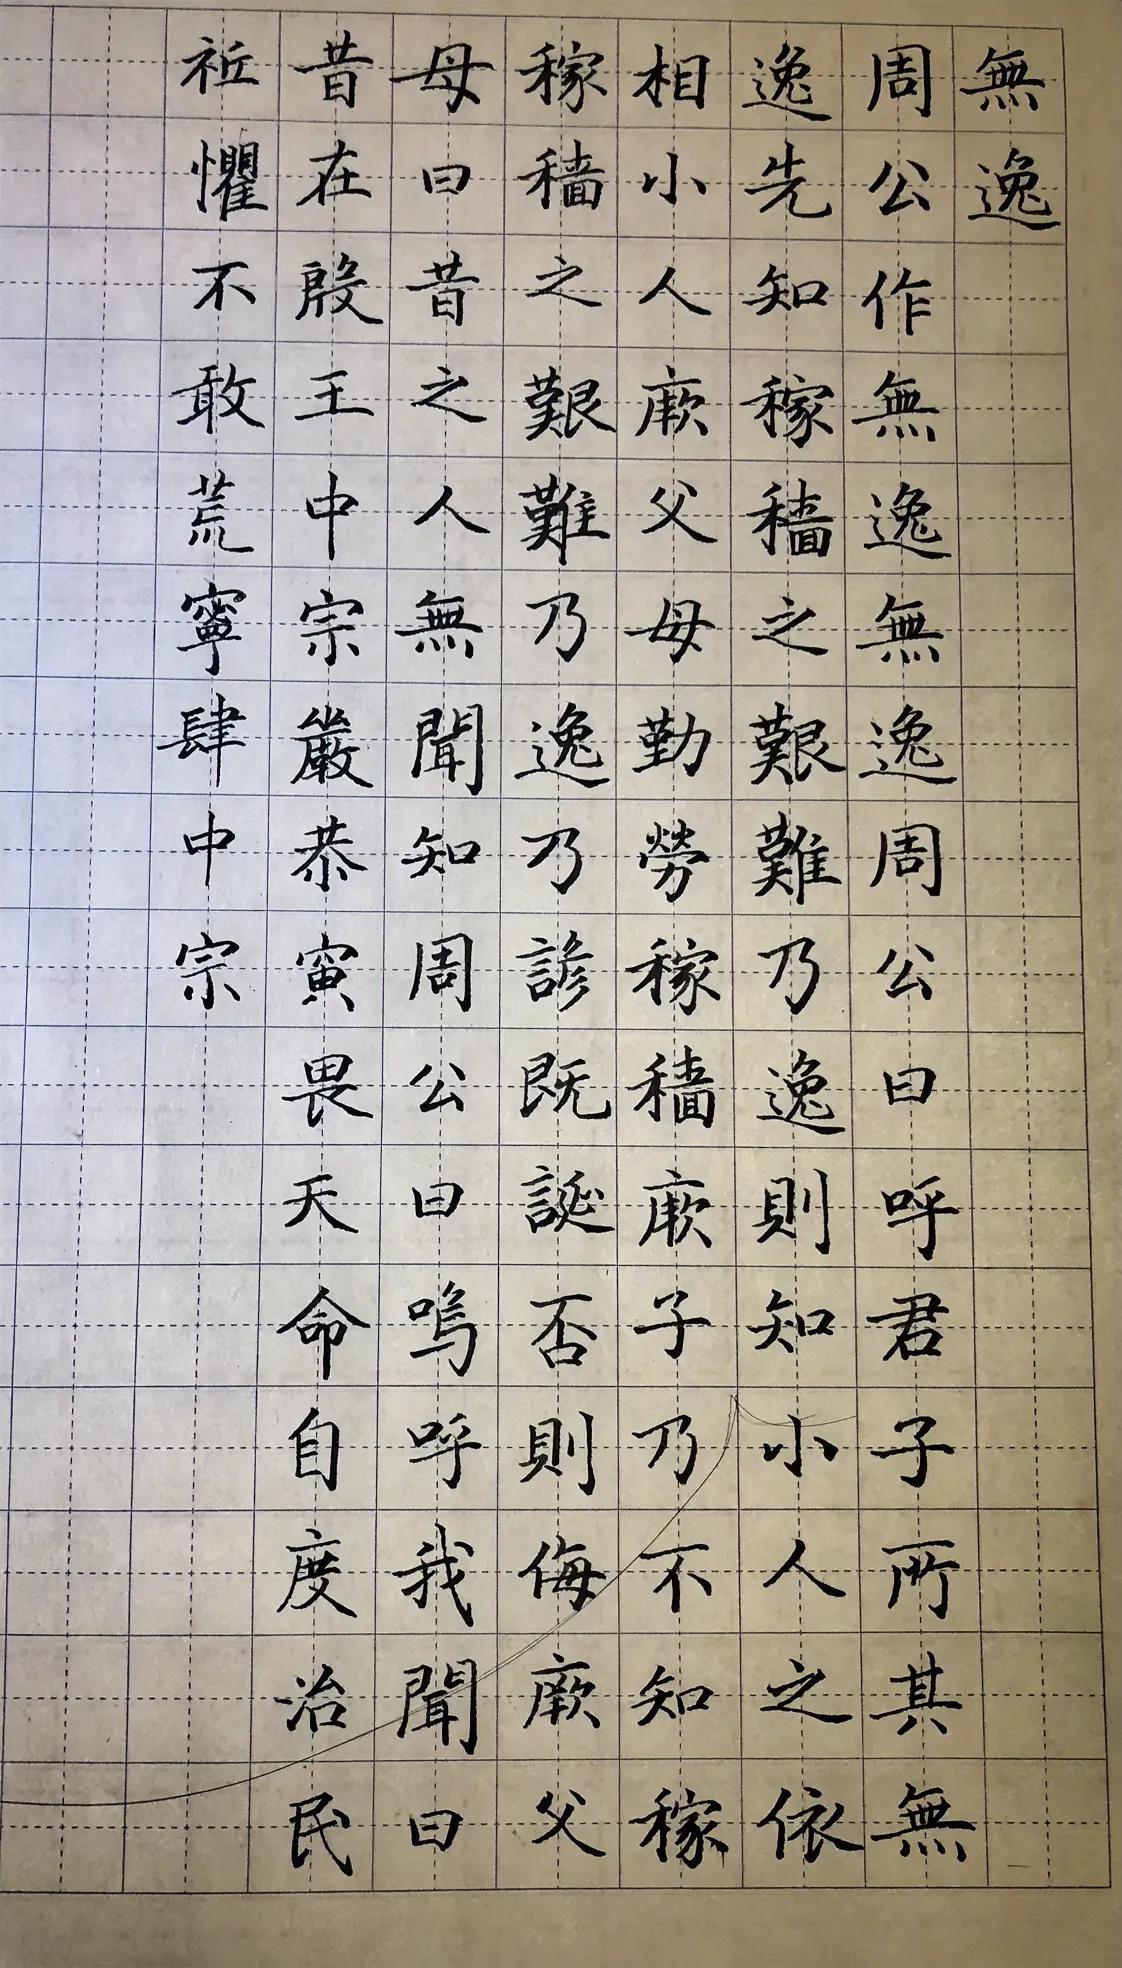 無逸
周公作無逸無逸周公曰呼君子所其無
逸先知稼穡之艱難乃逸則知小人之依
相小人厥父母勤勞稼穡厥子乃不知稼
稼穡之艱難乃逸乃諺既誕否則侮厥父
母曰昔之人無聞知周公曰嗚呼我聞曰
昔在殷王中宗嚴恭寅畏天命自度治民
祗懼不敢荒寧肆中宗